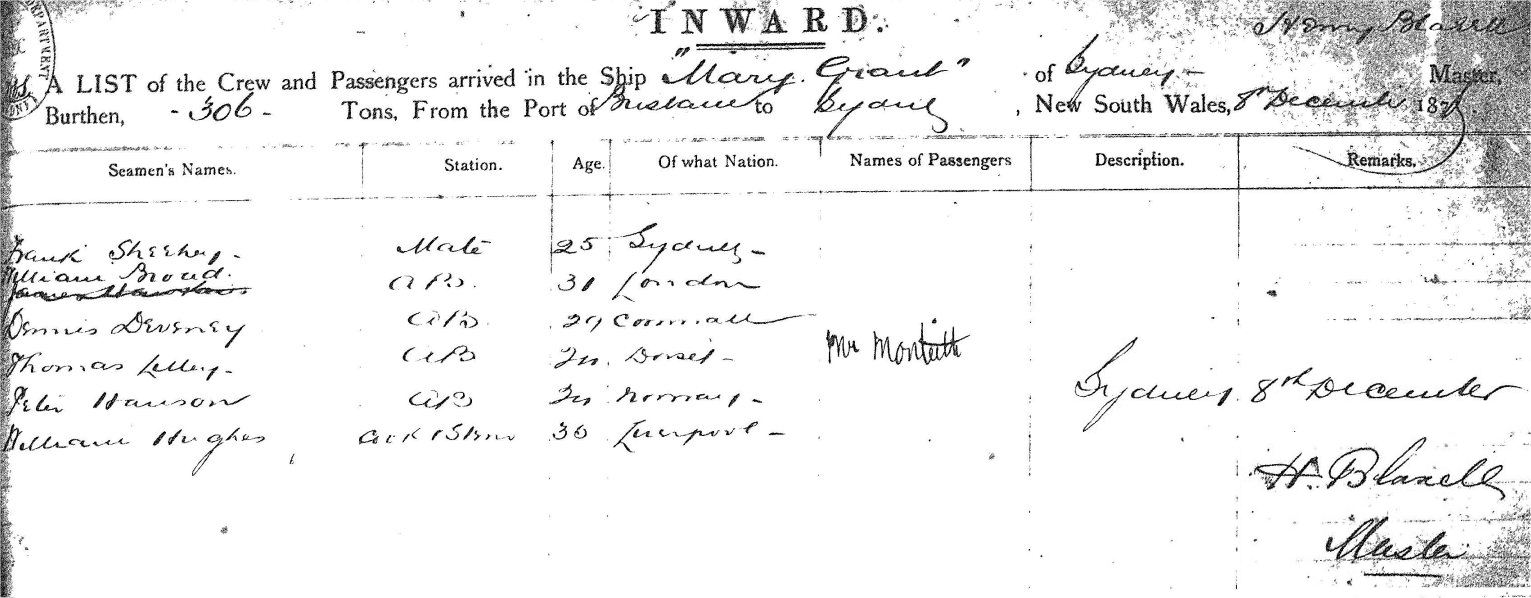 INWARD.
Henry Blaxell
A LIST of the Crew and Passengers arrived in the Ship "Mary Grant" of Sydney - Master,
Burthen, - 306 - Tons, From the Port of Brisbane to Sydney, New South Wales, 8th December 187
Seamen's Names. Station. Age. Of what Nation. Names of Passengers Description. Remarks.
Frank Sheehey - Mate 25 Sydney -
William Broud. AB. 31 London
Dennis Deveney AB 29 Cornwall
Mr Monteith
Thomas Lelley - AB Dorset -
Sydney 8th December
Peter Hanson AB Norway -
William Hughes Cook & Stew 36 Liverpool -
H. Blaxell
Master